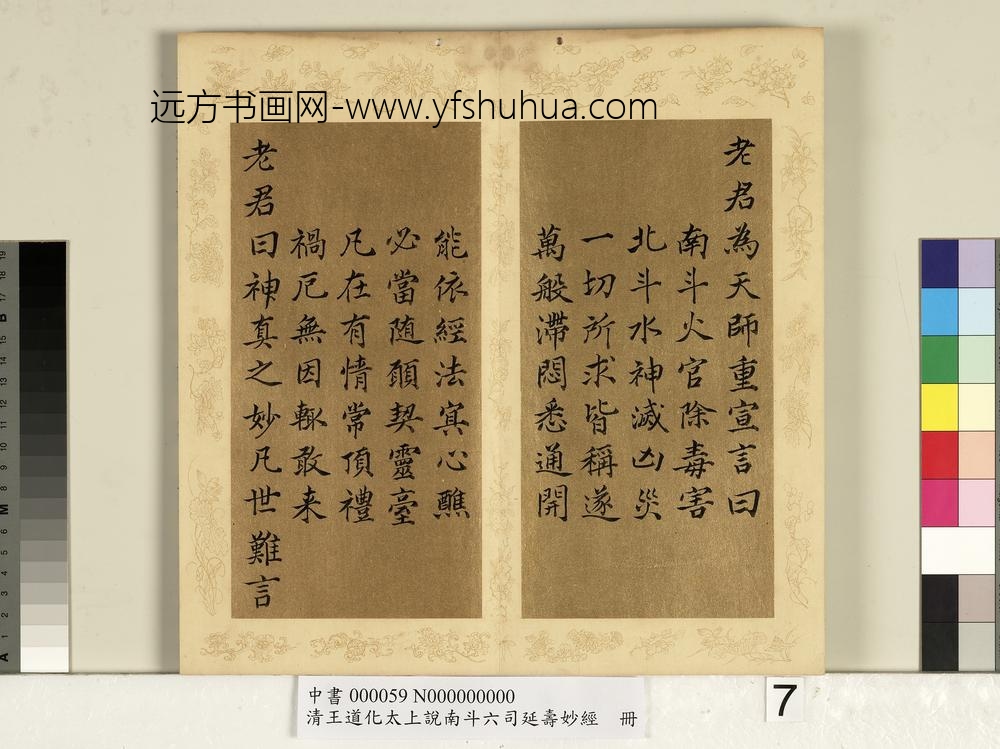 远方书画网-www.yfshuhua.com
老君為天師重宣言曰
南斗火官除毒害
北斗水神滅凶災
一切所求皆稱遂
萬般滯悶悉通開
能依經法冥心醮
必當随願契靈臺
凡在有情常頂禮
禍厄無因輙敢来
老君曰神真之妙凡世難言
中書 000059 N000000000
清王道化太上說南斗六司延壽妙經 冊
7